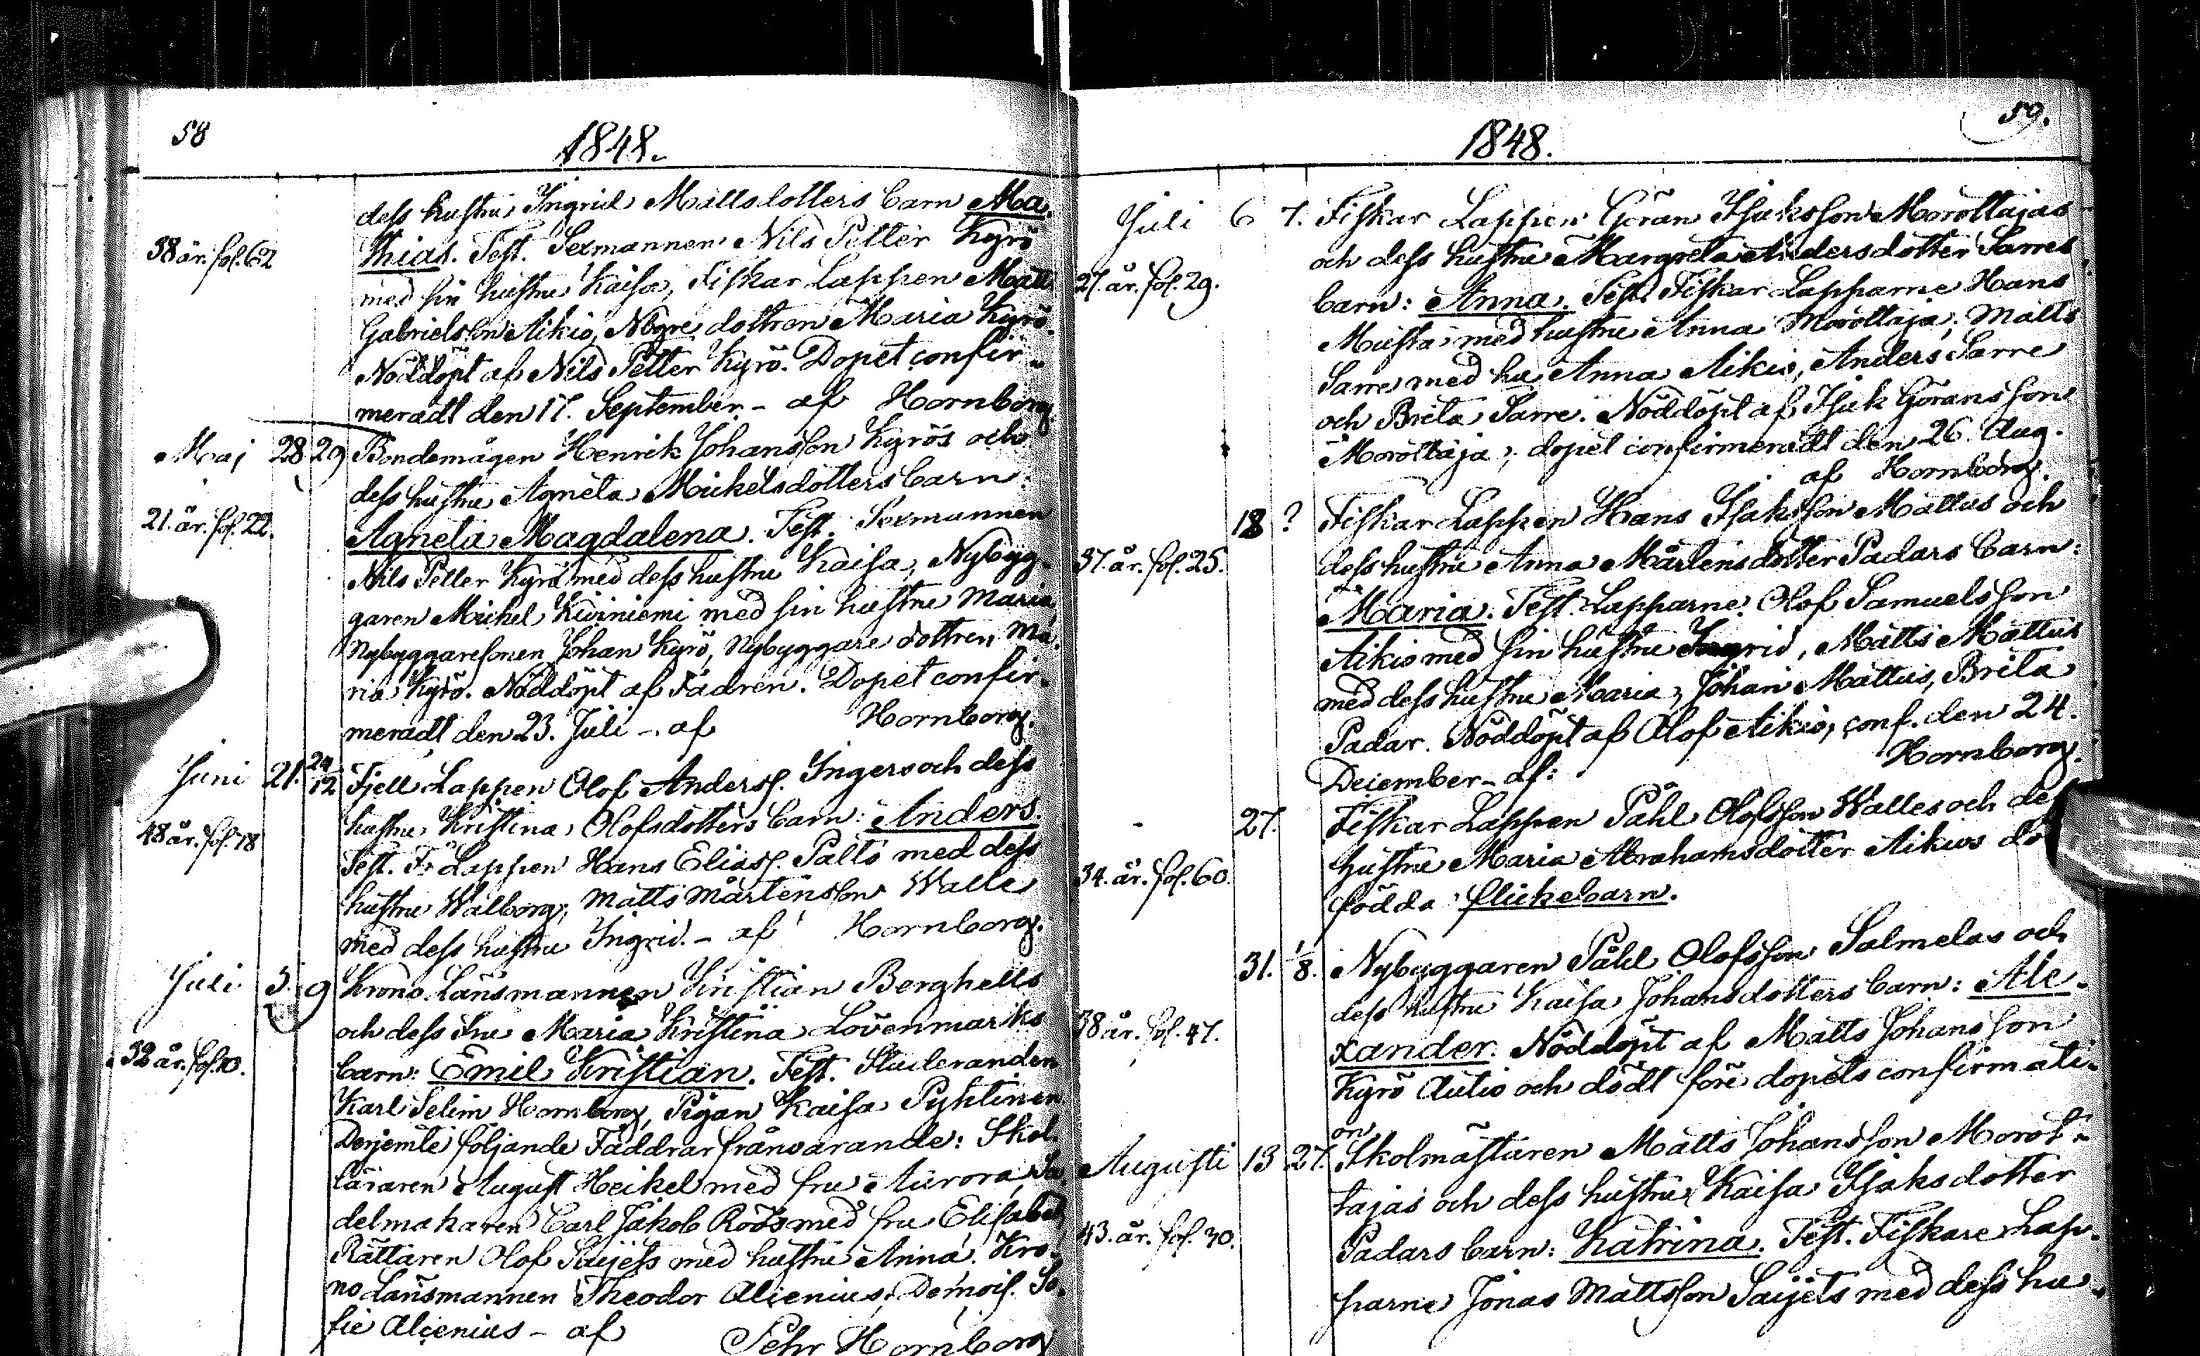 58
1848.
dess hustru Ingrid Mattsdotters barn Ma-
thias. Test. Sexmannen Nils Petter Kyrö
38 år. fol. 62
med sin hustru Kaisa, Fiskar Lappen Matts
Gabrielsson Aikio, Nbgre dottren Maria Kyrö.
Nöddöpt af Nils Petter Kyrö. Dopet confir-
meradt den 17. September - af Hornborg.
Maj 28 29 Bondemågen Henrik Johansson Kyrös och
dess hustru Agneta Mickelsdotters barn
21. år. fol. 22.
Agneta Magdalena. Test. Sexmannen
Nils Petter Kyrö med dess hustru Kaisa, Nybyg-
garen Mickel Kiviniemi med sin hustru Maria
Nybyggaresonen Johan Kyrö, Nybyggare dottren Ma-
ria Kyrö. Nöddöpt af Fadren. Dopet confir-
meradt den 23. Juli - af Hornborg.
Juni 21. 24/12 Fjell Lappen Olof Anderss. Ingers och dess
hustru Kristina Olofsdotters barn: Anders.
48 år. fol. 78
Test. F. Lappen Hans Eliass. Palto med dess
hustru Walborg, Matts Mårtensson Walle
med dess hustru Ingrid. - af Hornborg.
Juli 3. 9 Krono Länsmannen Kristian Berghells
och dess fru Maria Kristina Lövenmarks
32 år. fol. 10.
barn: Emil Kristian. Test. Studeranden
Karl Selim Hornborg, Pigan Kaisa Pyhtinen
Derjemte följande Faddrar frånvarande: Skol-
läraren August Heikel med fru Aurora, Sa-
delmakaren Carl Jakob Roos med fru Elisabet
Rättaren Olof Saijets med hustru Anna. Kro-
no Länsmannen Theodor Alcenius, Demois. So-
fie Alcenius - af
Pehr Hornborg
59.
1848.
Juli 6 7. Fiskar Lappen Göran Isaksson Morottajas
och dess hustru Margreta Andersdotter Sarres
27. år. fol. 29.
barn: Anna. Test. Fiskar Lapparne Hans
Musta med hustru Anna Morottaja, Matts
Sarre med hu Anna Aikio, Anders Sarre
och Brita Sarre. Nöddöpt af Isak Göransson
Morottaja; dopet confirmeradt den 26. Aug.
af Hornborg.
18 ? Fiskar Lappen Hans Isaksson Mattus och
37. år. fol. 25.
dess hustru Anna Mårtensdotter Padars barn:
Maria. Test. Lapparne Olof Samuelsson
Aikio med sin hustru Ingrid, Matts Mattus
med dess hustru Maria, Johan Mattus, Brita
Padar. Nöddöpt af Olof Aikio, conf. den 24.
December - af: Hornborg.
27. Fiskar Lappen Påhl Olofsson Walles och des
hustru Maria Abrahamsdotter Aikios dö
34. år. fol. 60.
födda flickebarn.
31. 1/8. Nybyggaren Påhl Olofsson Salmelas och
dess hustru Kaisa Johansdotters barn: Ale-
38 år. fol. 47.
xander. Nöddöpt af Matts Johansson
Kyrö Autio och dödt före dopets confirmati-
on.
Augusti 13 27. Skolmästaren Matts Johansson Morot-
tajas och dess hustru Kaisa Isaksdotter
43. år. fol. 30.
Padars barn: Katrina. Test. Fiskare Lap-
parne Jonas Mattsson Saijets med dess hu-